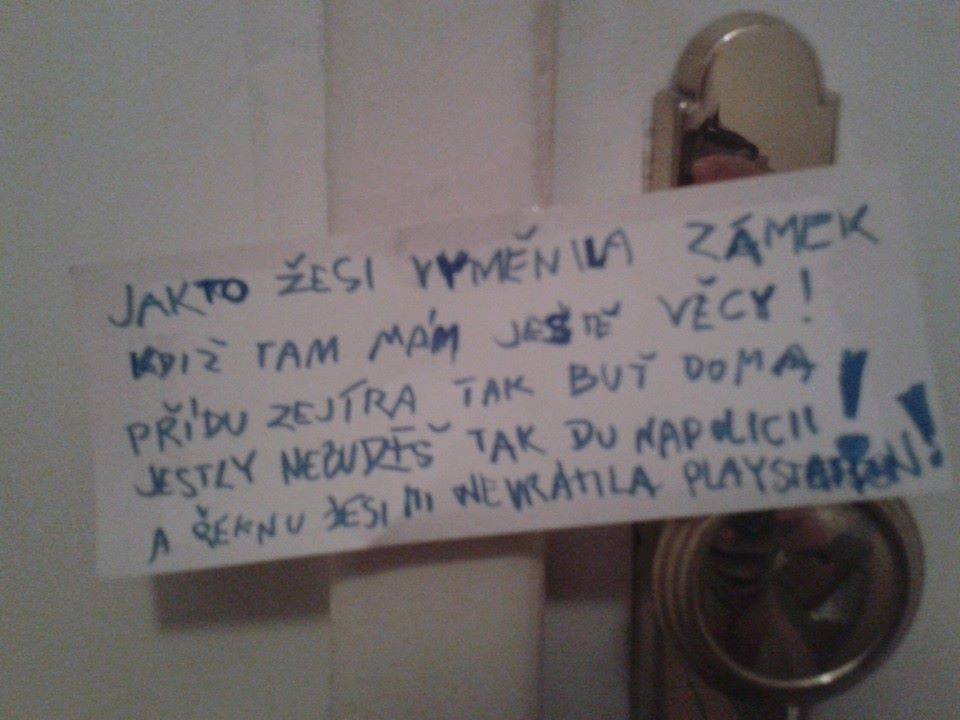 JAKTO ŽESI VYMĚNILA ZÁMEK
KDIŽ TAM MÁM JEŠTĚ VĚCY!
PŘÍDU ZEJTRA TAK BUŤ DOMA!
JESTLY NEBUDEŠ TAK DU NAPOLICII!
A ŘEKNU ŽESI MI NEVRÁTILA PLAYSTATION!